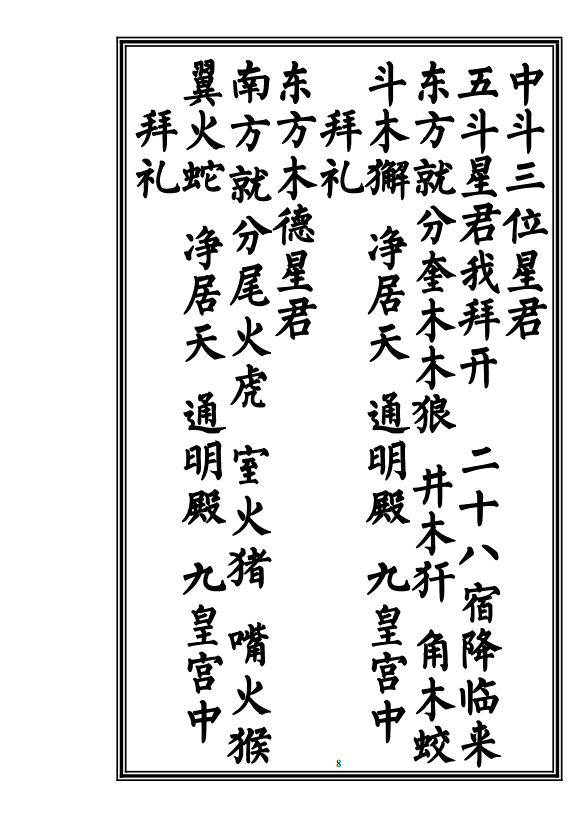 中斗三位星君
五斗星君我拜开 二十八宿降临来
东方就分奎木木狼 井木犴 角木蛟
斗木獬 净居天 通明殿 九皇宫中
拜礼
东方木德星君
南方就分尾火虎 室火猪 嘴火猴
翼火蛇 净居天 通明殿 九皇宫中
拜礼
8